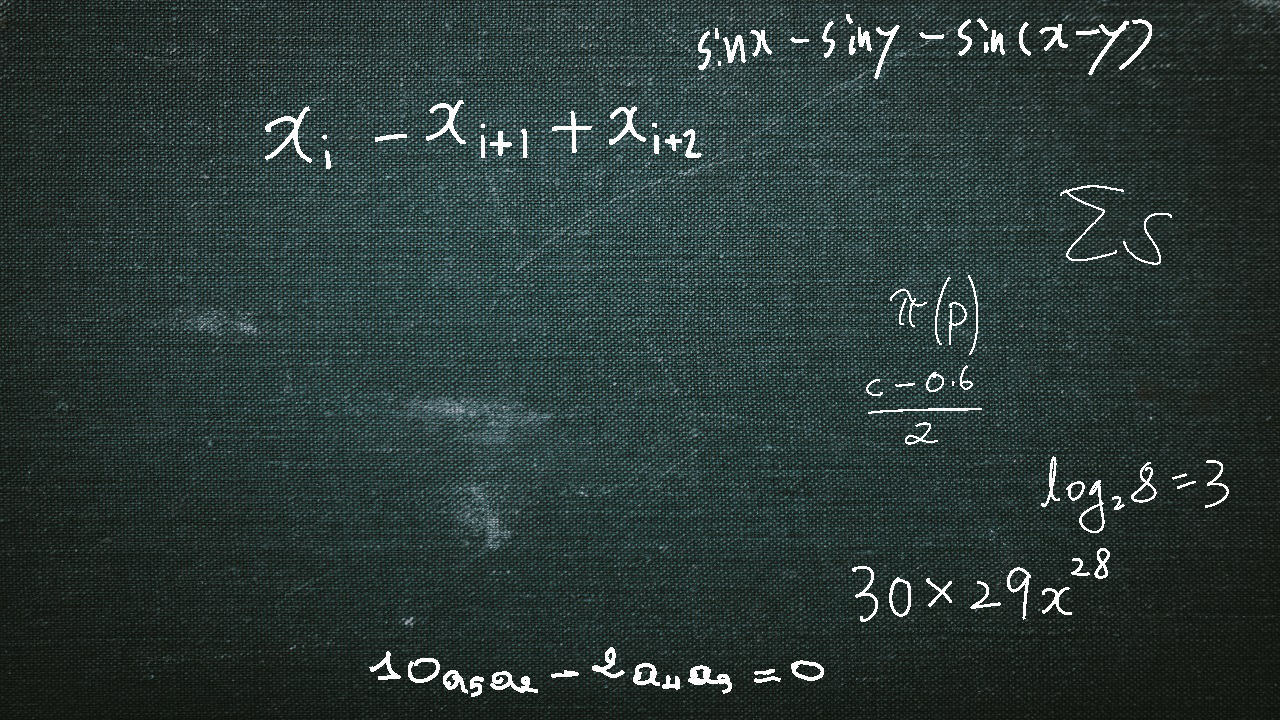 sin x - sin y - sin(x-y)
x_i - x_{i+1} + x_{i+2}
∑s
π(p)
\frac{c-0.6}{2}
log_2 8 = 3
30×29x^{28}
10a_5a_2 - 2a_4a_3 = 0